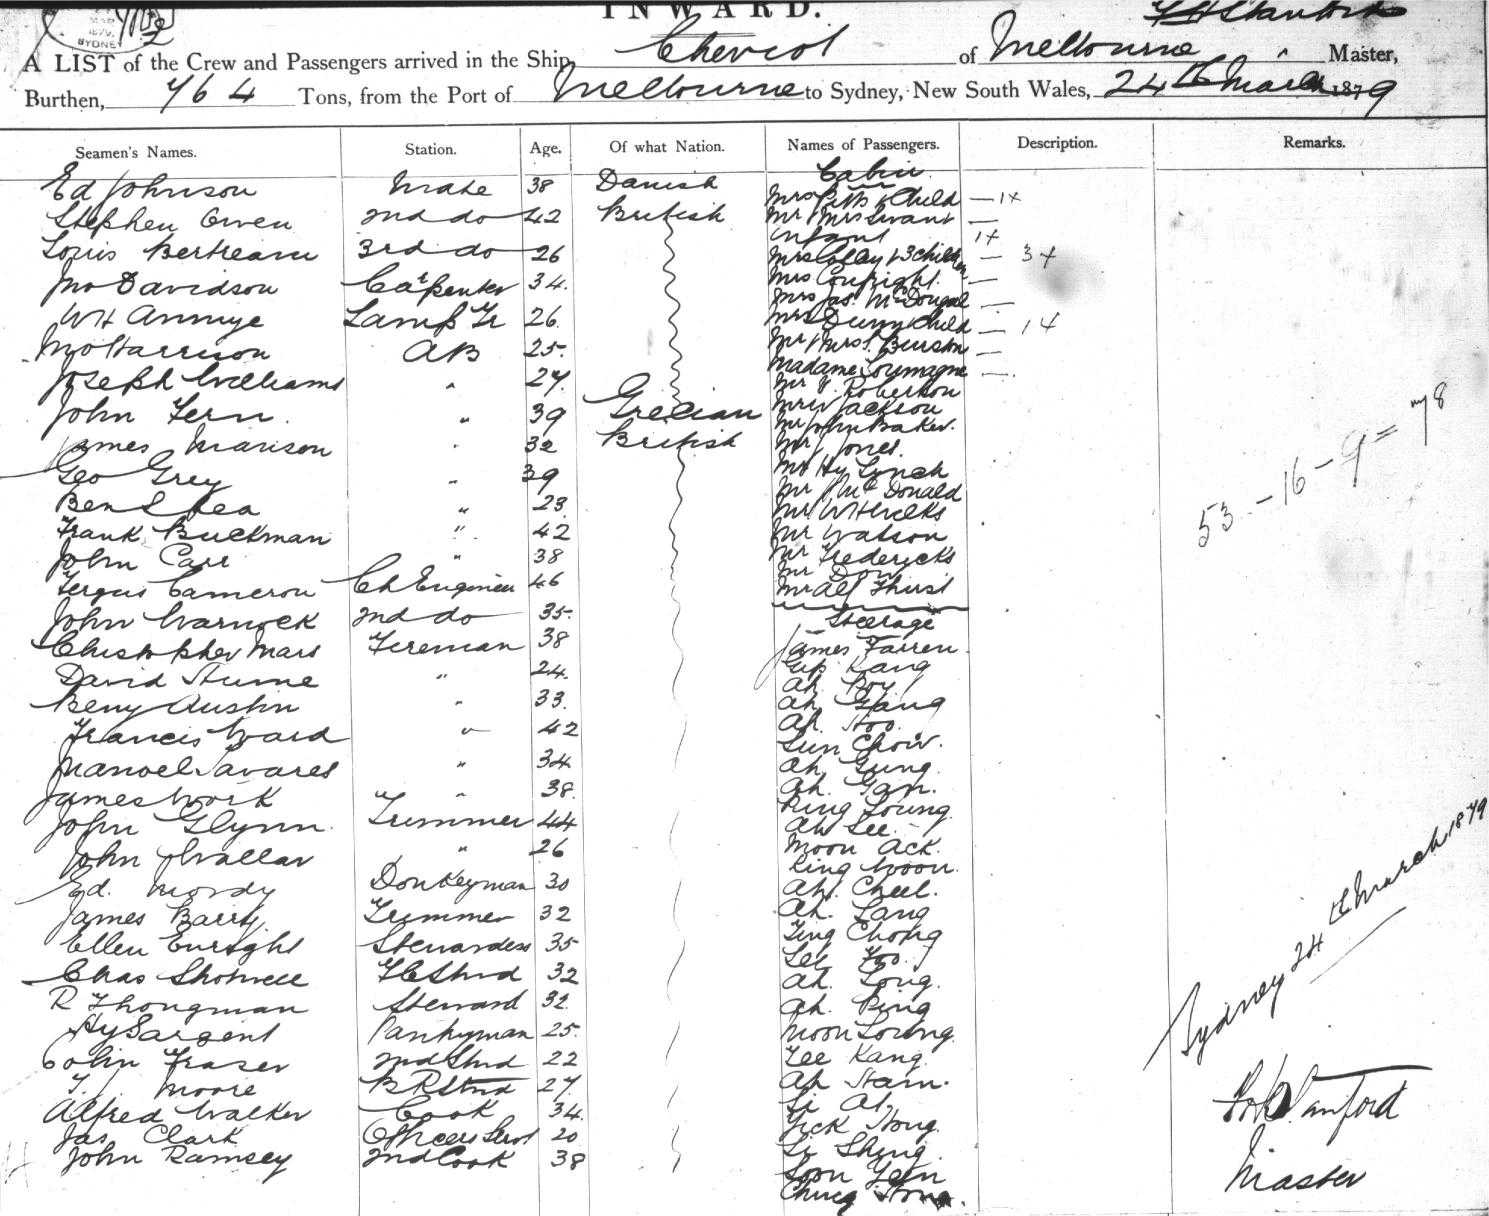 INWARD.
SYDNEY
A LIST of the Crew and Passengers arrived in the Ship, Cheviot of Melbourne Master,
Burthen, 764 Tons, from the Port of Melbourne to Sydney, New South Wales, 24th March 1879
Seamen's Names. Station. Age. Of what Nation. Names of Passengers. Description. Remarks.
Cabin
Ed Johnson Mate 38 Danish
Mrs Pitt & Child — 1+
Stephen Owen 2nd do 42 British
Mr Mrs —
Infant 1+
Louis 3rd do 26
Mrs Colley & 3 children — 3+
Jno Davidson Carpenter 34.
Mrs —
Mrs Jas McDougal —
WH Lamp Tr 26.
Mrs Dunn & Child — 1+
Jno Harrison AB 25.
Mr Mrs —
Madame —.
Joseph Williams " 27.
Mr Roberson
John Fern. " 39 Grecian
Mr W Jackson
Mr John Baker.
James Manson " 32 British
Mr J Jones.
Geo Grey " 39
Mr Hy Lynch
Mr J McDonald
Ben Lea " 23
Mr WH
Frank Buckman " 42
Mr Watson
John Carr " 38
Mr Fredericks
Mr Don
Fergus Cameron Ch Engineer 46
Mr Alf
John Warnock 2nd do 35.
Steerage
Christopher Mars Fireman 38
James Farren
David Hume " 24.
Kang
Ah
Beny Austin " 33.
Ah Gang
Francis Ward " 42
Ah Hoo.
Sun Chow.
Manoel Tavares " 34
Ah Gung.
James Work " 38.
Ah
Ring Loung
John Glynn. Trimmer 44
Ah Lee.
John " 26
Moon Ack.
King Woon.
Ed. Mordy Donkeyman 30
Ah. Cheel.
James Barry Trimmer 32
Ah. Lang
Ting Chong
Ellen Enright Stewardess 35
Lee Foo.
Chas Shotwell FC Stwd 32
Ah. Long.
R Thongman Steward 32.
Ah. Ping
Hy Sargent Pantryman 25.
Moon Loung.
Colin Fraser 2nd Stwd 22
Lee Kang
T. Moore BR Stwd 27.
Ah Ham.
Alfred Walker Cook 34.
Li At,
Jas Clark Officers Servt 20
Hong
John Ramsey 2nd Cook 38
Li Shing.
Soon
Ching Hong.
53 - 16 - 9 = 78
Sydney 24th March 1879
Stanford
Master